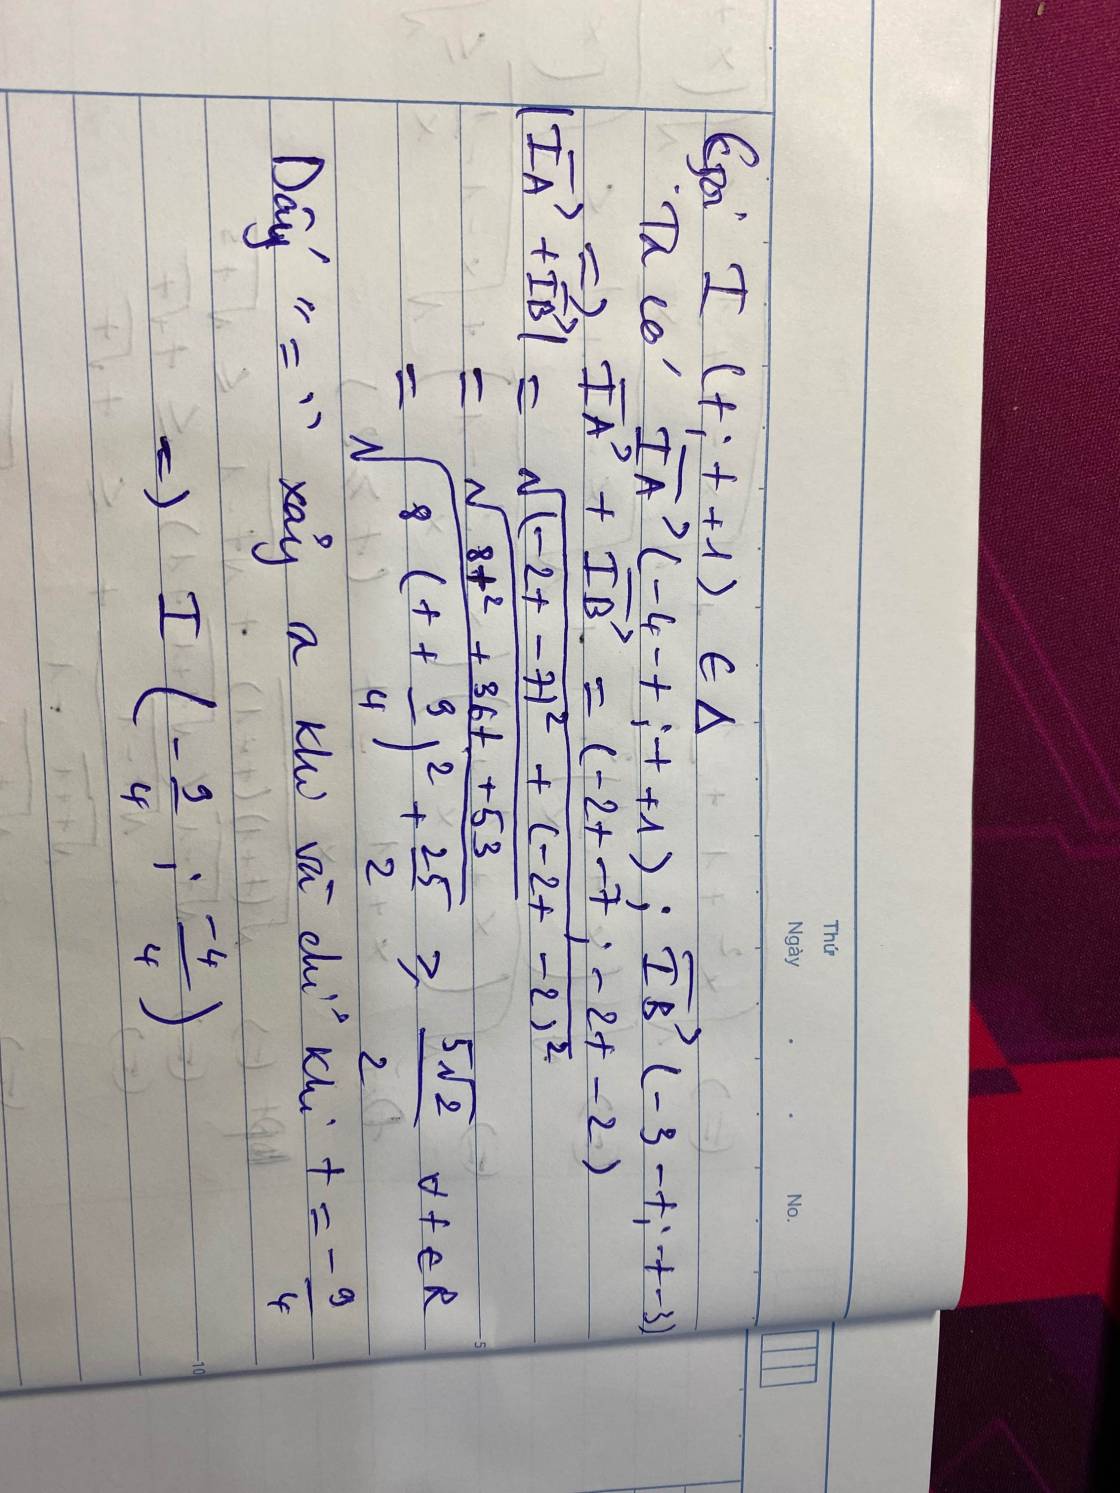 Thứ
Ngày . . No.
Gọi I (t; t+1) ∈ Δ
Ta có IA→ (-4-t; -t+1); IB→ (-3-t; -t-3)
=> IA→ + IB→ = (-2t-7; -2t-2)
|IA→ + IB→| = √((-2t-7)² + (-2t-2)²)
= √(8t² + 36t + 53)
= √(8(t + 9/4)² + 25/2) ≥ 5√2/2 ∀t∈R
5
Dấy "=" xảy a khi và chỉ khi t = -9/4
=) I (-9/4; -4/4)
10